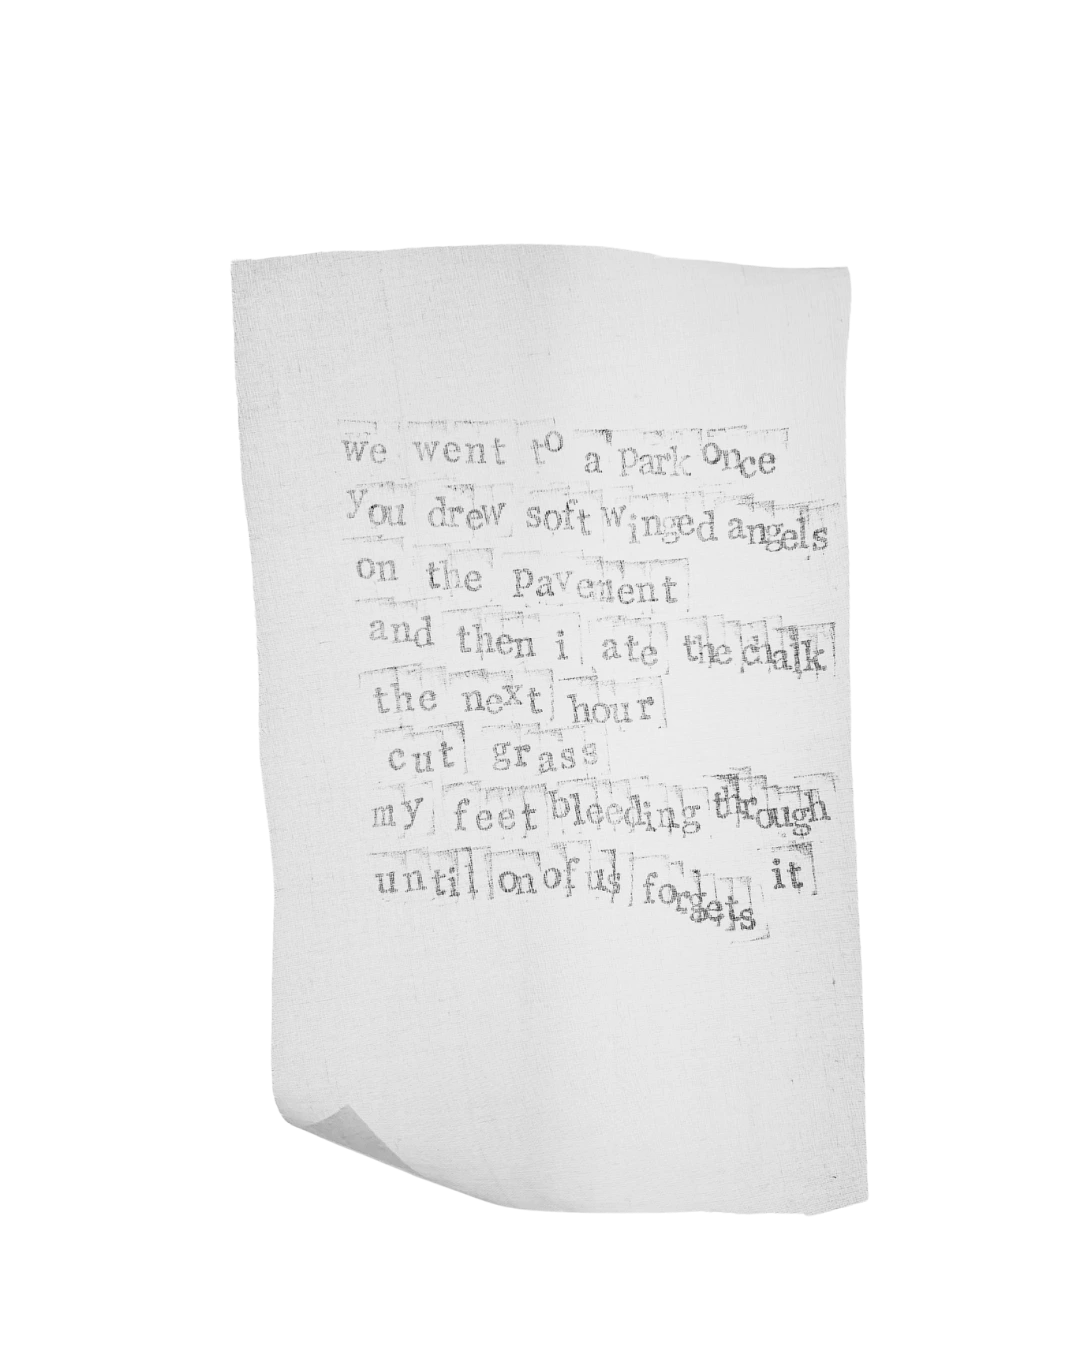 we went to a park once
you drew soft winged angels
on the pavement
and then i ate the chalk
the next hour
cut grass
my feet bleeding through
until on of us forgets it